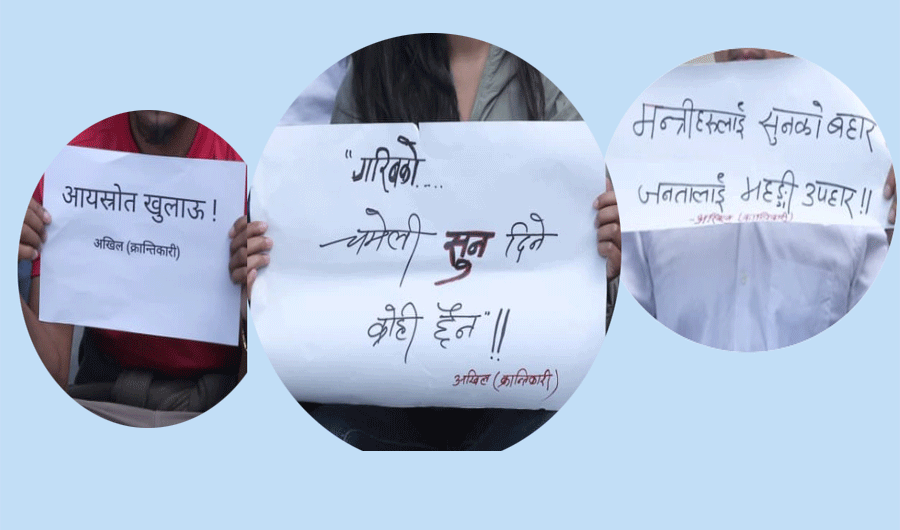 आयस्रोत खुलाऊ !
अखिल (क्रान्तिकारी)
"गरिबको....
चमेली सुन दिने
कोही छैन" !!
अखिल (क्रान्तिकारी)
मन्त्रीहरूलाई सुनको बहार
जनतालाई महङ्गी उपहार !!
-अखिल (क्रान्तिकारी)